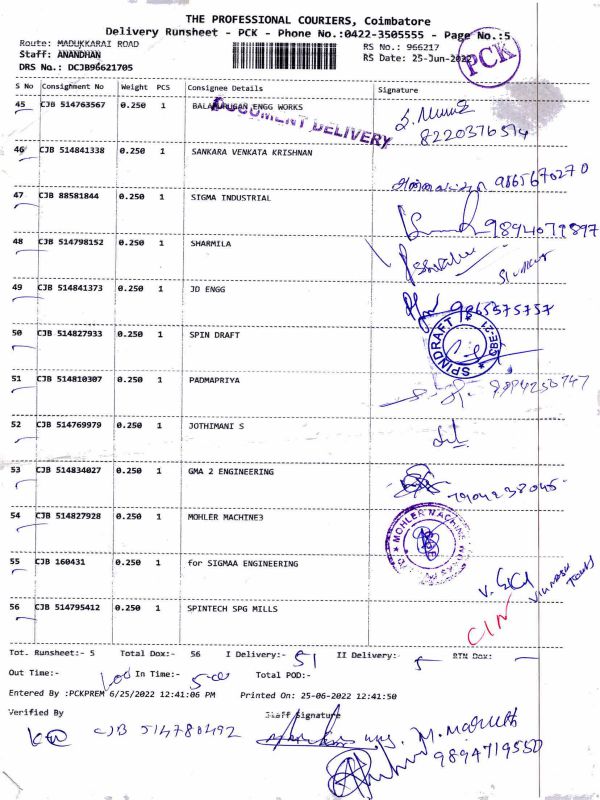 THE PROFESSIONAL COURIERS, Coimbatore
Delivery Runsheet - PCK - Phone No.:0422-3505555 - Page No.:5
Route: MADUKKARAI ROAD RS No.: 966217
Staff: ANANDHAN RS Date: 25-Jun-2022
DRS No.: DCJB96621705
PCK
S No Consignment No Weight PCS Consignee Details Signature
45 CJB 514763567 0.250 1 BALAMURUGAN ENGG WORKS
DOCUMENT DELIVERY
8220376514
46 CJB 514841338 0.250 1 SANKARA VENKATA KRISHNAN
9865670270
47 CJB 88581844 0.250 1 SIGMA INDUSTRIAL
9894079897
48 CJB 514798152 0.250 1 SHARMILA
49 CJB 514841373 0.250 1 JD ENGG
9865575757
50 CJB 514827933 0.250 1 SPIN DRAFT
SPINDRAFT
51 CJB 514810307 0.250 1 PADMAPRIYA
9894250747
52 CJB 514769979 0.250 1 JOTHIMANI S
53 CJB 514834027 0.250 1 GMA 2 ENGINEERING
7904238045
54 CJB 514827928 0.250 1 MOHLER MACHINE3
MOHLER MACHINE
55 CJB 160431 0.250 1 for SIGMAA ENGINEERING
56 CJB 514795412 0.250 1 SPINTECH SPG MILLS
CIN
Tot. Runsheet:- 5 Total Dox:- 56 I Delivery:- 51 II Delivery:- 5 RTN Dox:-
Out Time:- In Time:- 5-00 Total POD:-
Entered By :PCKPREM 6/25/2022 12:41:06 PM Printed On: 25-06-2022 12:41:50
Verified By Staff Signature
CJB 514780492
9894719550